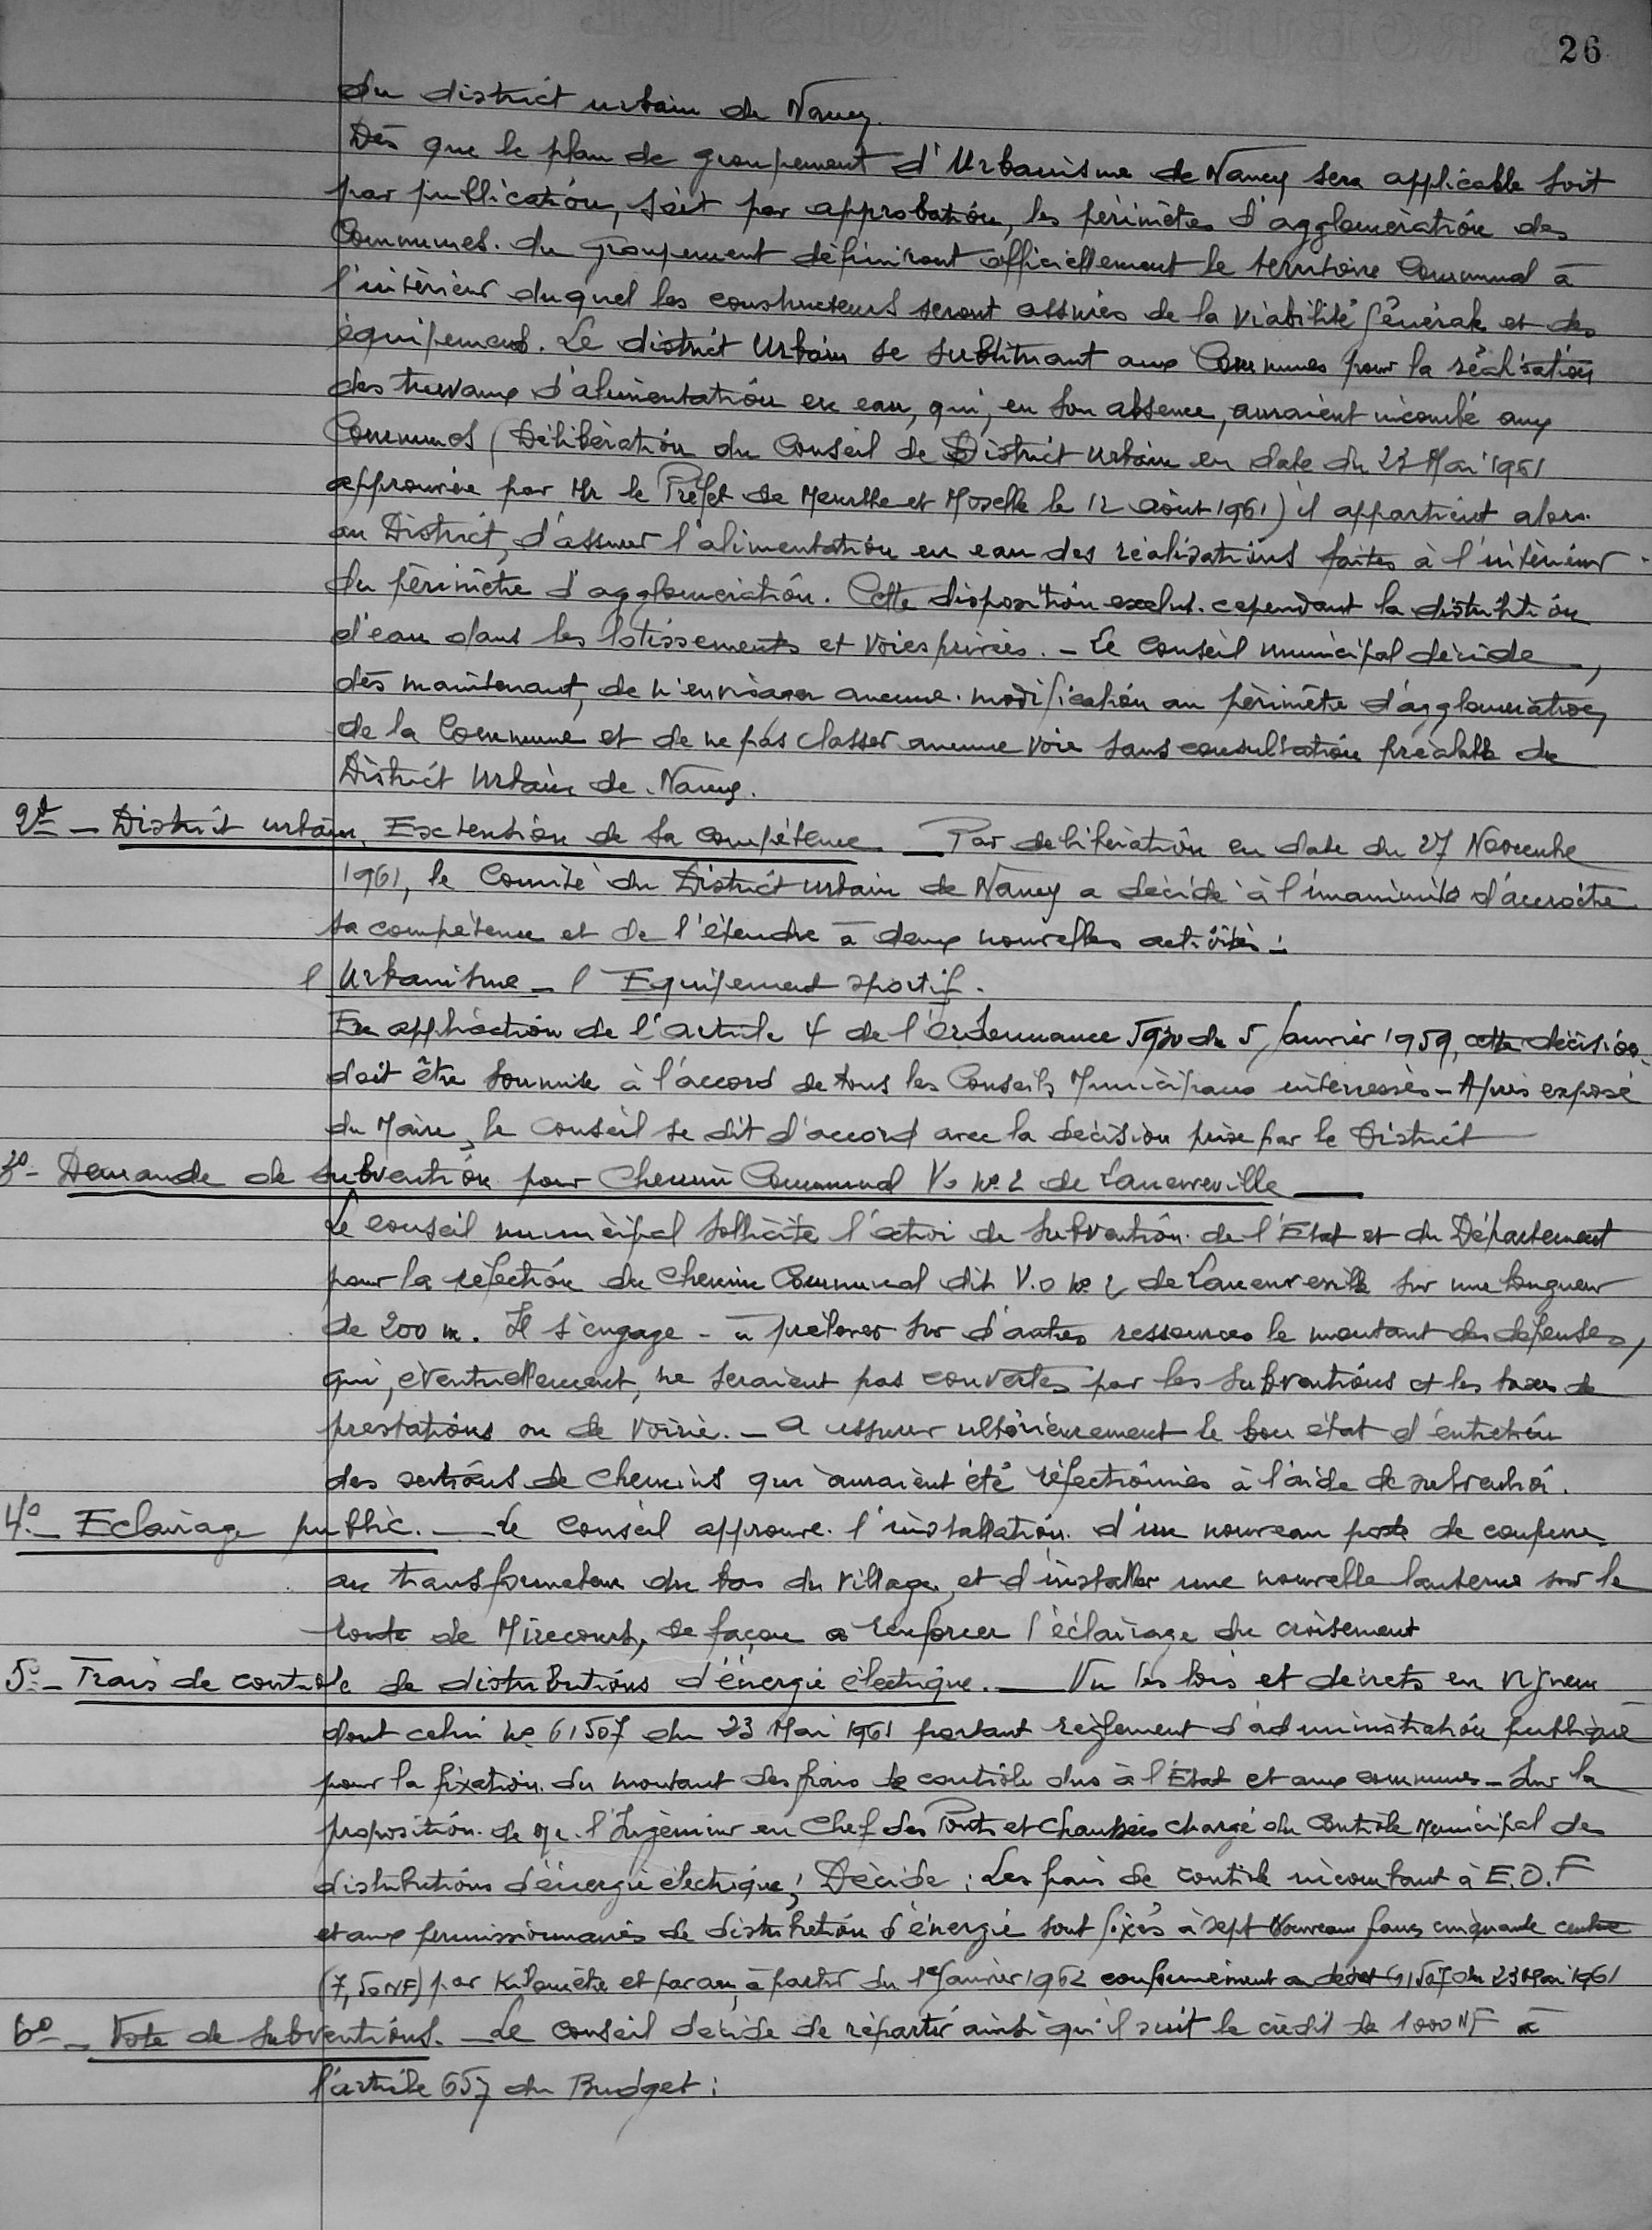 26
du district urbain de Nancy.
Dès que le plan de groupement d'Urbanisme de Nancy sera applicable soit
par publication, soit par approbation, les périmètres d'agglomération des
Communes du groupement définiront officiellement le territoire Communal à
l'intérieur duquel les constructeurs seront assurés de la viabilité générale et des
équipements. Le district Urbain se substituant aux Communes pour la réalisation
des travaux d'alimentation en eau, qui, en son absence, auraient incombé aux
Communes (Délibération du Conseil de District Urbain en date du 23 Mai 1961
approuvée par Mr le Préfet de Meurthe et Moselle le 12 août 1961) il appartient alors
au District, d'assurer l'alimentation en eau des réalisations faites à l'intérieur
du périmètre d'agglomération. Cette disposition exclut cependant la distribution
d'eau dans les lotissements et voies privées. - Le Conseil municipal décide,
dès maintenant, de n'envisager aucune modification au périmètre d'agglomération
de la Commune et de ne pas classer aucune voie sans consultation préalable du
District Urbain de Nancy.
2° - District urbain. Extension de sa compétence. - Par délibération en date du 27 Novembre
1961, le Comité du District urbain de Nancy a décidé à l'unanimité d'accroître
sa compétence et de l'étendre à deux nouvelles activités :
l'Urbanisme - l'Equipement sportif.
En application de l'article 4 de l'ordonnance 5930 du 5 Janvier 1959, cette décision
doit être soumise à l'accord de tous les Conseils Municipaux intéressés - Après exposé
du Maire, le Conseil se dit d'accord avec la décision prise par le District
3° - Demande de subvention pour Chemin Communal V.o n° 2 de Laneuveville
Le conseil municipal sollicite l'octroi de subvention de l'Etat et du Département
pour la réfection du Chemin Communal dit V.o n° 2 de Laneuveville sur une longueur
de 200 m. Il s'engage - à prélever sur d'autres ressources le montant des dépenses,
qui, éventuellement, ne seraient pas couvertes par les subventions et les taxes de
prestations ou de voirie. - à assurer ultérieurement le bon état d'entretien
des sections de chemins qui auraient été réfectionnées à l'aide de subvention.
4° - Eclairage public. - Le Conseil approuve l'installation d'un nouveau poste de coupure
au transformateur du bas du village, et d'installer une nouvelle lanterne sur la
route de Mirecourt, de façon à renforcer l'éclairage du croisement
5° - Frais de contrôle de distributions d'énergie électrique. - Vu les lois et décrets en vigueur
dont celui n° 61507 du 23 Mai 1961 portant règlement d'administration publique
pour la fixation du montant des frais de contrôle dus à l'Etat et aux communes - Sur la
proposition de Mr. l'Ingénieur en Chef des Ponts et Chaussées chargé du Contrôle Municipal des
distributions d'énergie électrique ; Décide : Les frais de contrôle incombant à E.D.F
et aux permissionnaires de distribution d'énergie sont fixés à sept Nouveaux francs cinquante centimes
(7,50 NF) par Kilomètre et par an, à partir du 1er Janvier 1962 conformément au décret 61507 du 23 Mai 1961
6° - Vote de subventions. - Le Conseil décide de répartir ainsi qu'il suit le crédit de 1000 NF à
l'article 657 du Budget :